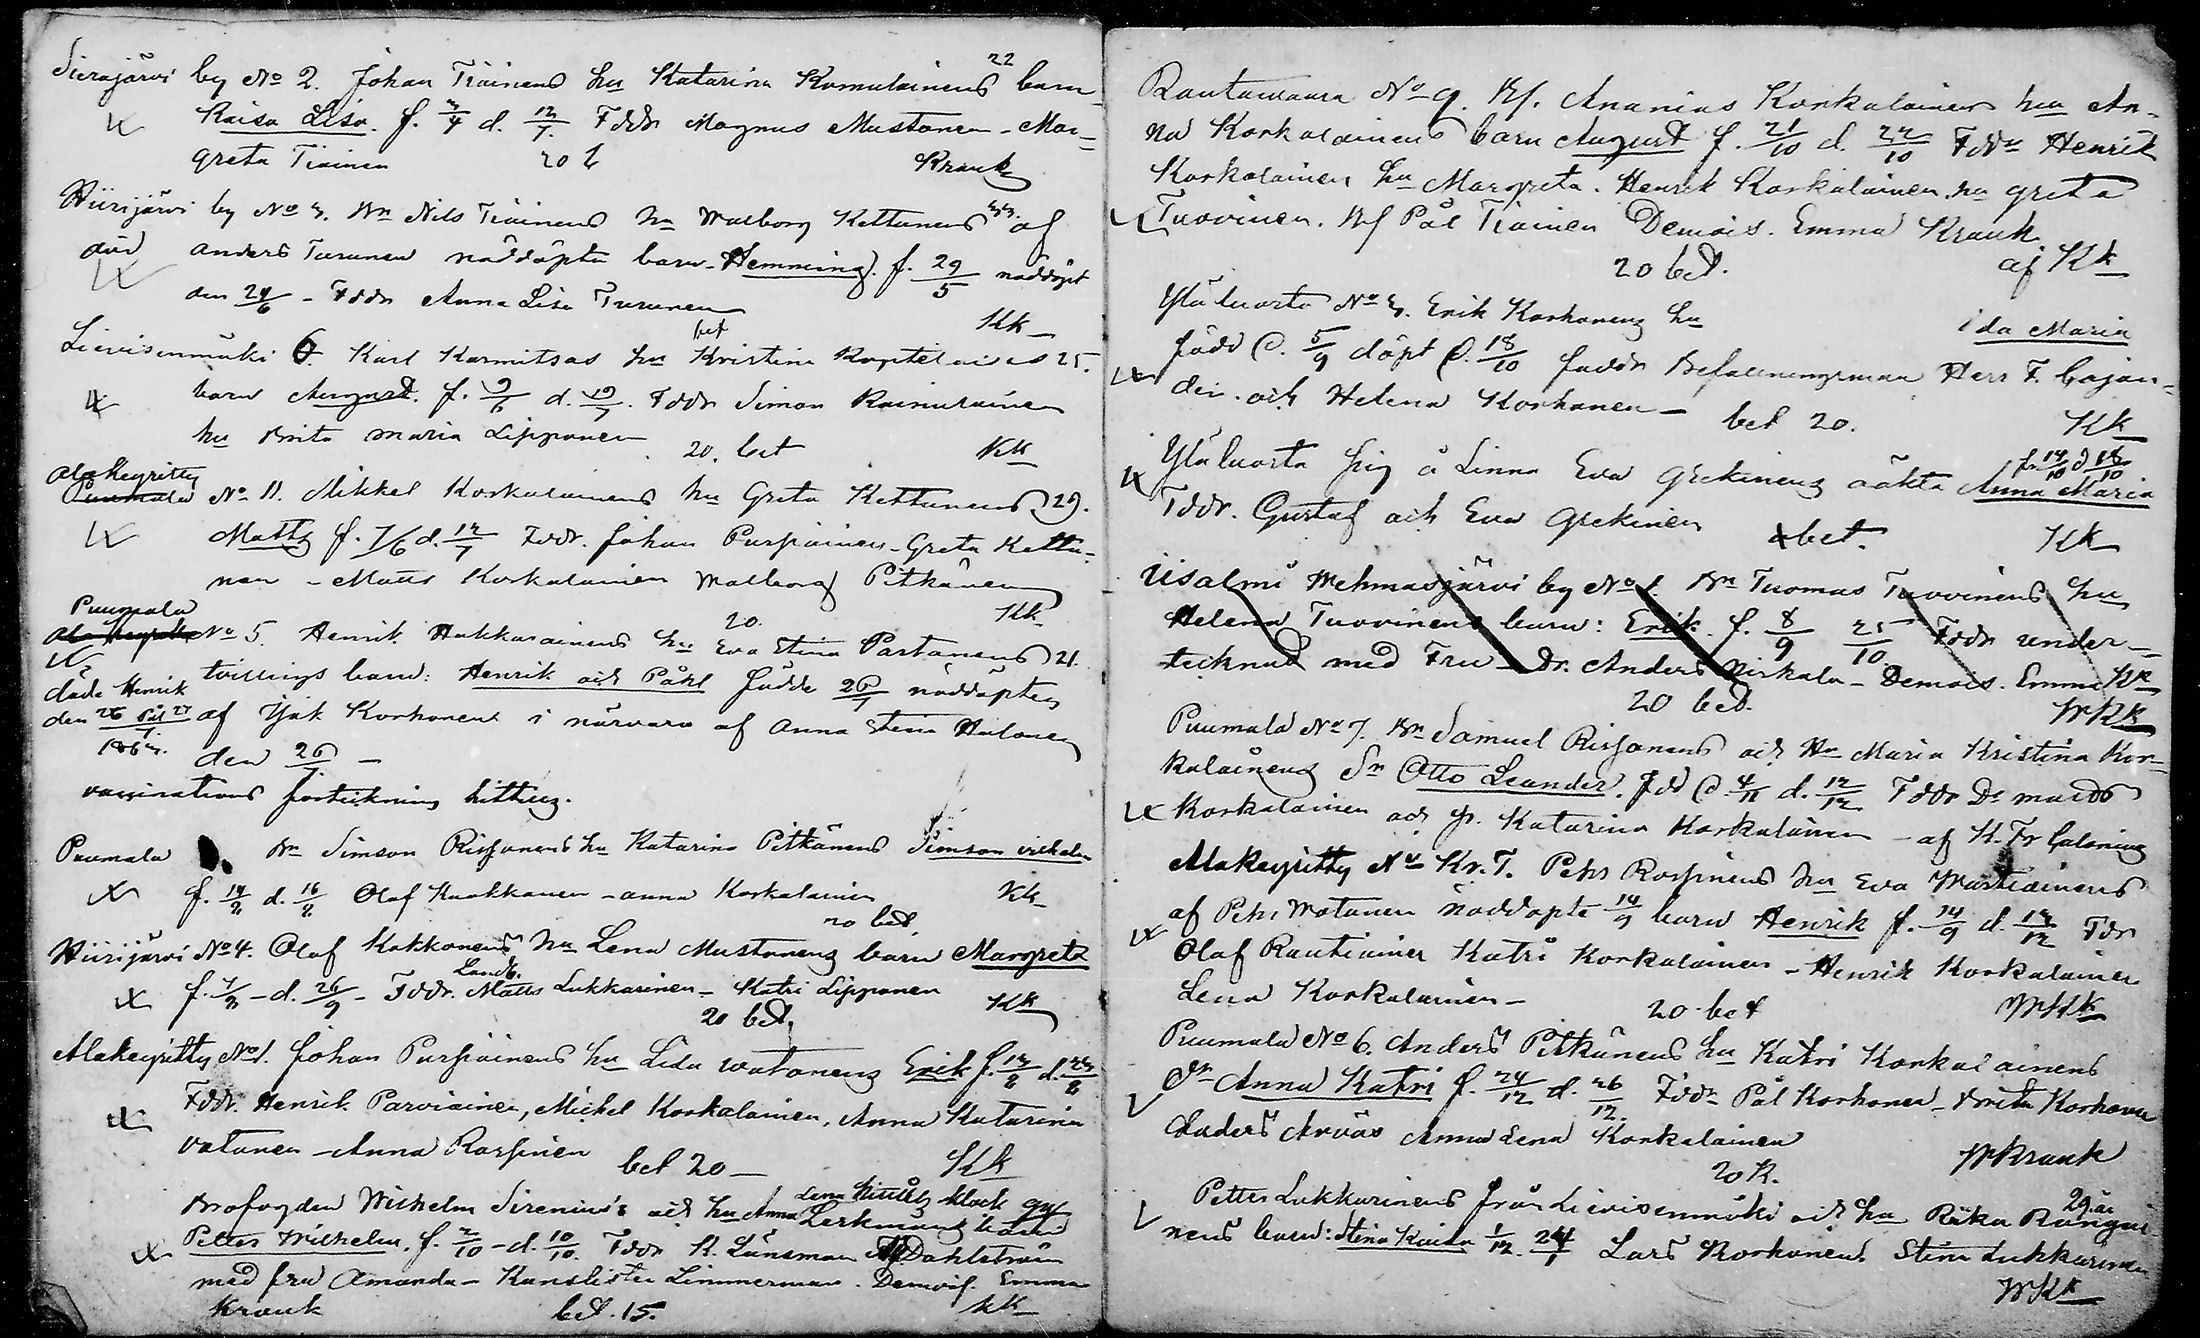 Sierajärvi by No 2. Johan Tiainens hu Katarina Komulainens 22 barn
Kaisa Lisa. f. 3/4 d. 12/7. Fddr Magnus Mustonen - Mar=
greta Tiainen 20 b Krank
Hiirijärvi by No 3. Bn Nils Tiainens hu Walborg Kettunens 33. af
död anders Turunen nöddöpta barn - Hemming. f. 29/5 nöddöpt
den 24/6 - Fddr Anna Lisa Turunen Kk
Lievisenmäki 6. Karl Karmitsas hu Kristina 25.
bet
barn August. f. 9/6 d. 19/7. Fddr Simon Rainulainen
hu Brita Maria Lipponen 20. bet KK
Alakeyritty
Puumala No 11. Mikkel Korkalainens hu Greta Kettunens 29.
Matts f. 7/6 d. 12/7 Fddr. Johan Purpiainen - Greta Kettu=
nen - Matts Korkalainen Walborg Pitkänen
20. Kk
Puumala
No 5. Henrik Hukkarainens hu Eva Stina Partanens 21.
tvillings barn: Henrik och Påhl födde 26/7 nöddöpte
döda Henrik
den 26 Pål 27
7.
1863.
af Isak Korhonen i närvaro af Anna Stina Halonen
den 26/7. -
vaccinations förteckning hittils.
Puumala Bn Simson Rissanens hu Katarina Pitkänens Simson vilhelm
f. 14/8 d. 16/8 Olof Kaakkunen - anna Korkalainen Kk
20 bet.
Hiirijärvi No 4. Olof Kokkonens hu Lena Mustonens barn Margreta
Landb.
f. 7/8 - d. 26/9 - Fddr. Matts Lukkarinen - Katri Lipponen Kk
20 bet.
Alakeyritty No 1. Johan Purpiainens hu Lida Watanens Erik f. 12/8 d. 23/8
Fddr. Henrik Parviainen, Mickel Korkalainen, Anna Katarina
Vatanen - Anna Raspinen bet 20 - Kk
Brofogden Wilhelm Sirenius's och hu Anna Lerkmans
Petter Wilhelm. f. 2/10 - d. 10/10. Fddr K. Länsman Dahlström
med fru Amanda - Kanslisten Limmerman. Demois. Emma
Krank bet. 15. KK
Rautavaara No 9. Bf. Ananias Korkalainens hu An=
na Korkalainens barn August f. 21/10 d. 22/10 Fddr Henrik
Korkalainen hu Margreta. Henrik Korkalainen, hu greta
Tuovinen. Bf Pål Tiainen Demois. Emma Krank
20 bet. af Kk
Yläluosta No 3. Erik Korhonens hu Ida Maria
född d. 5/9 döpt d. 18/10 faddr Befallningsman Herr F. Cajan=
der. och Helena Korhonen - bet 20. Kk
f. 14/10 d 18/10
Yläluosta pig å Linna Eva Grekinens oäkta Anna Maria
Fddr. Gustaf och Eva Grekinen bet. Kk
Iisalmi Wehmasjärvi by No 1. Bn Tuomas Tuovinens hu
Helena Tuovinens barn: Erik. f. 8/9 25/10 Fddr under-
tecknad med Fru - Dr. Anders Nirkala - Demois. Emma Kk
20 bet. WKk
Puumala No 7. Bn Samuel Rissanens och Hu Maria Kristina Kor=
kalainens Sn Otto Leander. föd d. 4/11 d. 12/12 Fddr
Korkalainen och p. Katarina Korkalainen - af K. Fr
Alakeyritty No Kr. T. Pehr Raspinens hu Eva Martiainens
af Pehr Watanen nöddöpte 14/9 barn Henrik f. 14/9 d. 13/12 Fdr
Olof Rautiainen Katri Korkalainen - Henrik Korkalainen
Lena Korkalainen - 20 bet WKk
Puumala No 6. Anders Pitkänens hu Katri Korkalainens
Dr Anna Katri f. 24/12 d. 26/12. Fddr Pål Korhonen - Brita Korhonen
Anders Arväs Anna Lena Korkalainen
20 K. WKrank
Petter Lukkarinens från Lievisenmäki och hu Rika Rongai
29 år
nens barn: Stina Kaisa 1/12. 24/1 Lars Korhonen. Stina Lukkarinen
WKk